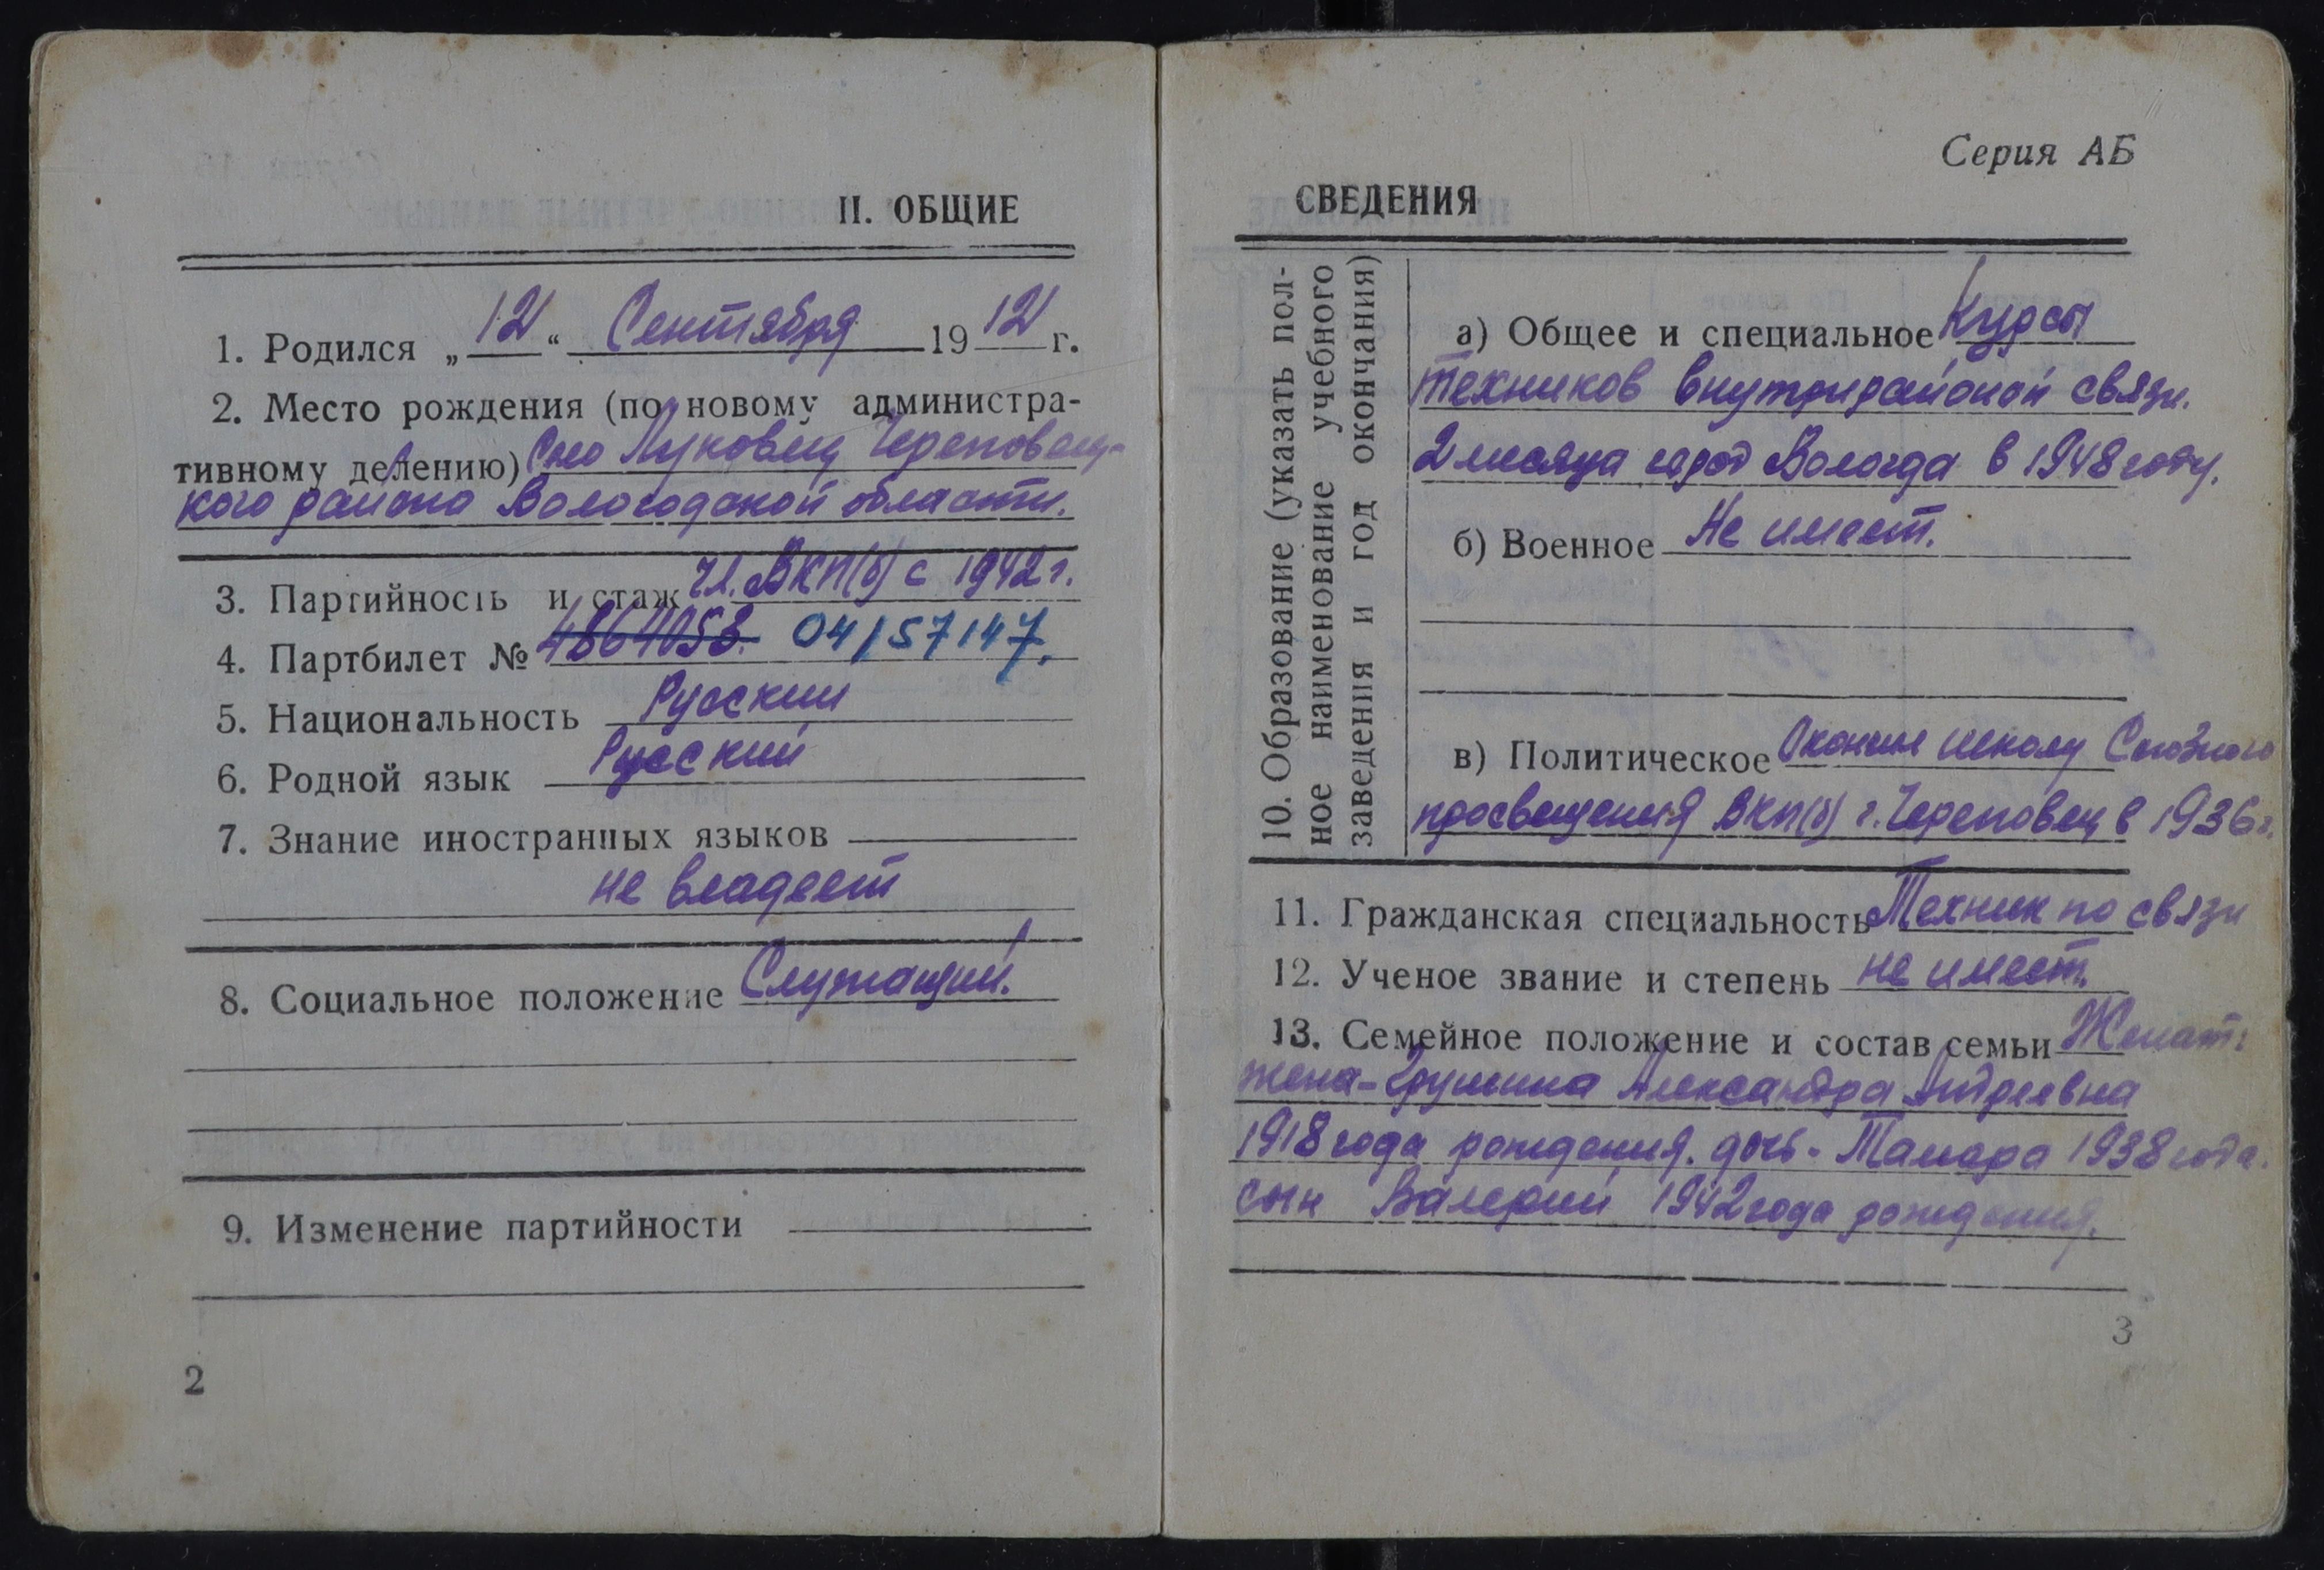 II. ОБЩИЕ
1. Родился „12“ Сентября 1912 г.
2. Место рождения (по новому администра-
тивному делению) Село Луковец Череповец-
кого района Вологодской области.
3. Партийность и стаж чл. ВКП(б) с 1942 г.
4. Партбилет № 4864058. 04157147.
5. Национальность Русский
6. Родной язык Русский
7. Знание иностранных языков
не владеет
8. Социальное положение Служащий.
9. Изменение партийности
2
Серия АБ
СВЕДЕНИЯ
10. Образование (указать пол-
ное наименование учебного
заведения и год окончания)
а) Общее и специальное Курсы
техников внутрирайоной связи.
2 месяца город Вологда в 1948 году.
б) Военное Не имеет.
в) Политическое Окончил школу Союзного
просвещения ВКП(б) г. Череповец в 1936 г.
11. Гражданская специальность Техник по связи
12. Ученое звание и степень не имеет.
13. Семейное положение и состав семьи Женат:
жена - Александра Андреевна
1918 года рождения. дочь - Тамара 1938 года.
сын Валерий 1942 года рождения.
3